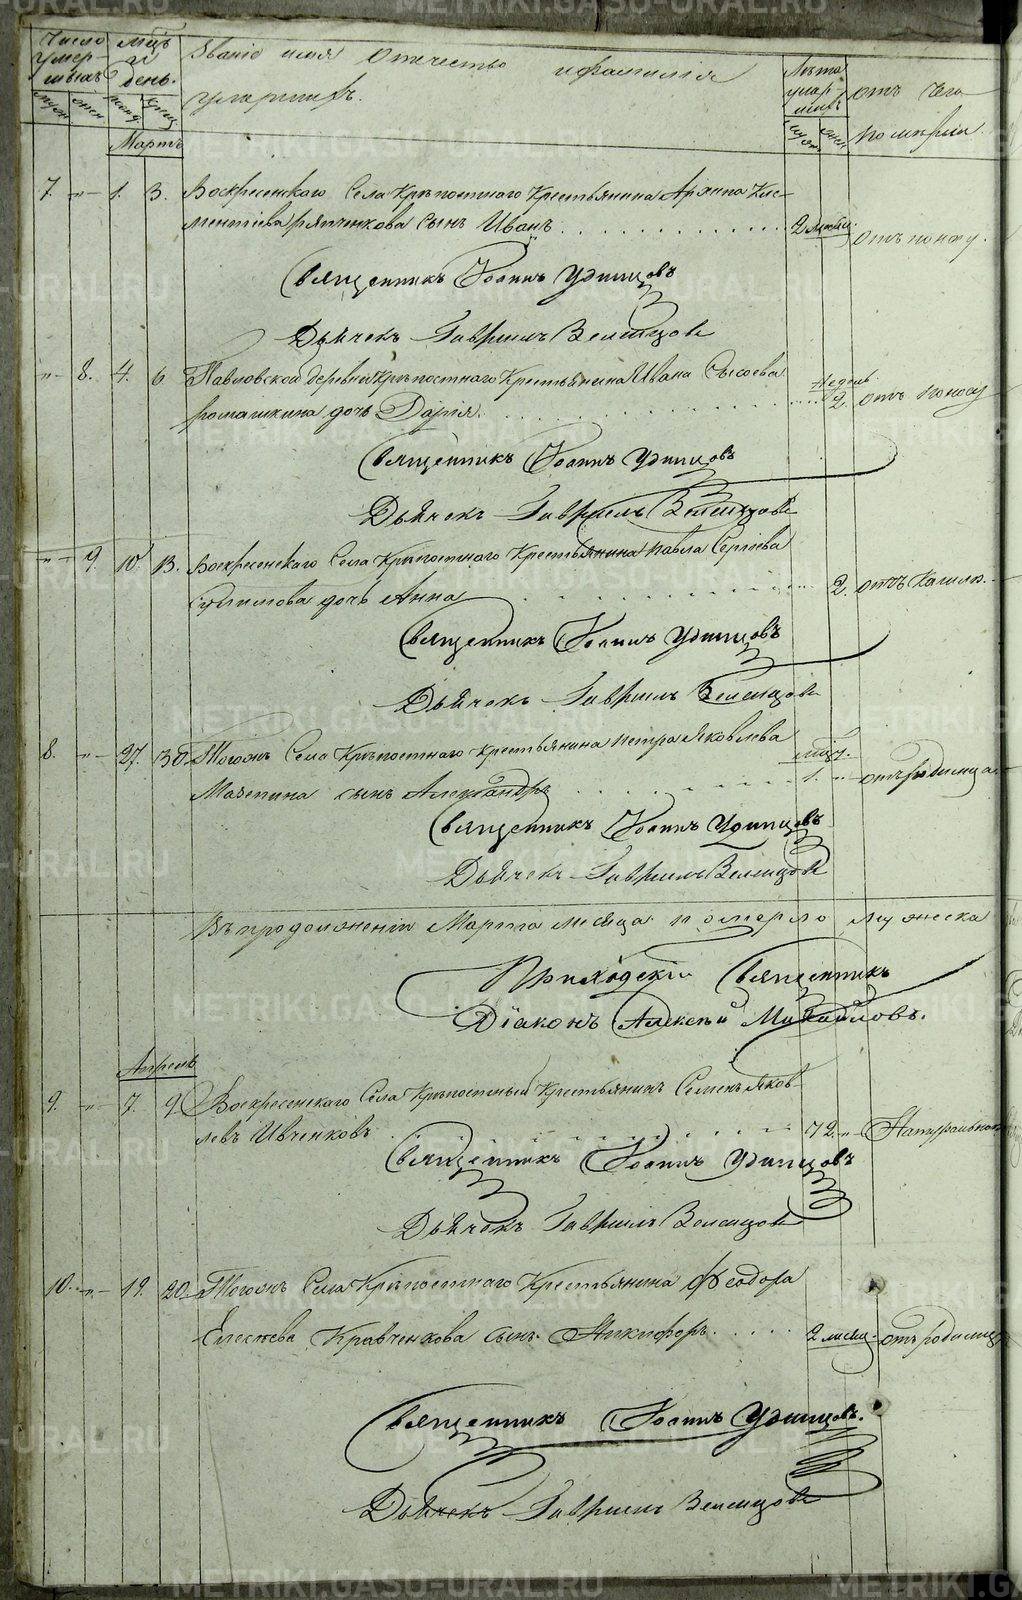 Число умер-шихъ
мцъ и день.
Званіе имя отчество и фамилія
умершихъ.
Лѣта умер-шихъ
отъ чего
померли.
Мартъ
7. -"- 1. 3. Воскресенскаго Села Крѣпостнаго Крестьянина Архипа Кле-
ментіева сынъ Иванъ 2 месяц. отъ поносу.
Священникъ Іоаннъ Удинцовъ
Дьячекъ Гавріилъ
-"- 8. 4. 6 Павловской деревни Крѣпостнаго Крестьянина Ивана Сысоева
недель
ромашкина дочь Дарія. 2. отъ поносу
Священникъ Іоаннъ Удинцовъ
Дьячекъ Гавріилъ
-"- 9. 10. 13. Воскресенскаго Села Крѣпостнаго Крестьянина Павла Сергіева
дочь Анна 2. отъ Кашлю.
Священникъ Іоаннъ Удинцовъ
Дьячекъ Гавріилъ
8. -"- 27. 30. Тогожъ Села Крѣпостнаго крестьянина петра Яковлева
сынъ Александръ 1. -"- отъ родимца
Священникъ Іоаннъ Удинцовъ
Дьячекъ Гавріилъ
Въ продолженіи Марта месяца померло мужеска
Приходскій Священникъ
Діаконъ Алексѣй Михайловъ.
Апрель
9. -"- 7. 9. Воскресенскаго Села Крѣпостный Крестьянинъ Семенъ Яков-
левъ Ивченковъ 72. -"- Натуральною
Священникъ Іоаннъ Удинцовъ
Дьячекъ Гавріилъ
10. -"- 19. 20. Тогожъ Села Крѣпостнаго Крестьянина Феодора
Елесѣева Кравченкова сынъ Никифоръ. 2 месяц. отъ родимца
Священникъ Іоаннъ Удинцовъ.
Дьячекъ Гавріилъ
METRIKI.GASO-URAL.RU